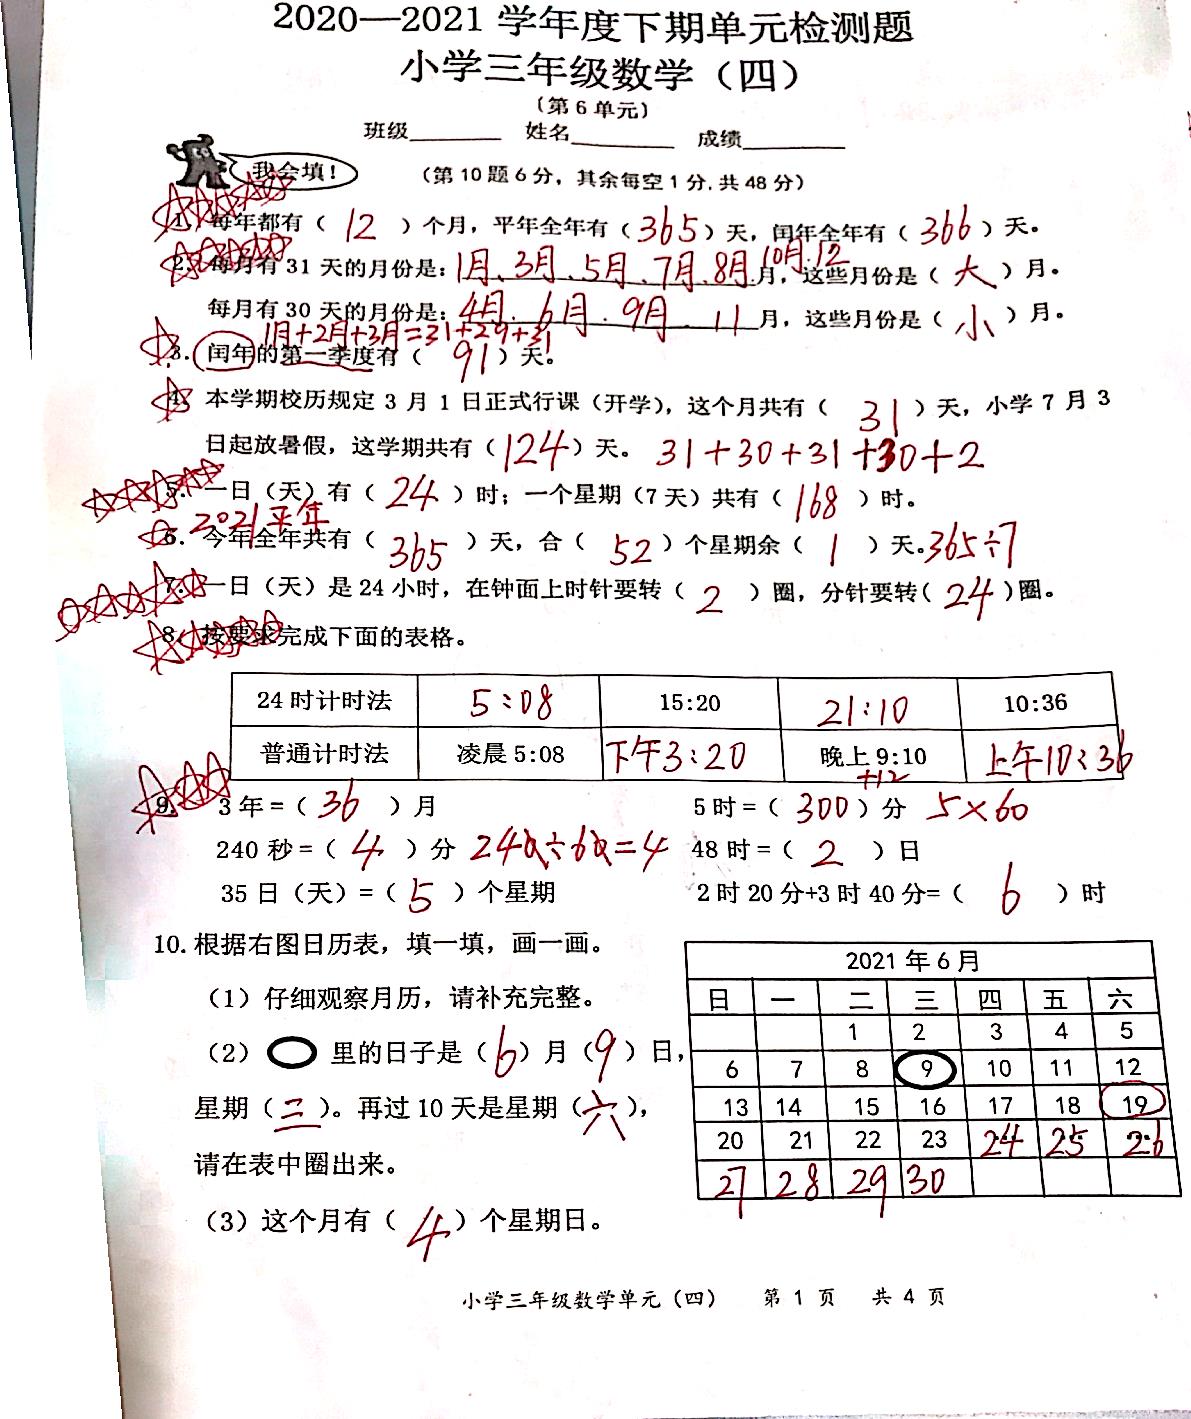 2020—2021 学年度下期单元检测题
小学三年级数学（四）
（第 6 单元）
班级________ 姓名_________ 成绩_________
我会填！ （第 10 题 6 分，其余每空 1 分,共 48 分）
1. 每年都有（ 12 ）个月，平年全年有（365）天，闰年全年有（ 366 ）天。
2. 每月有 31 天的月份是：1月、3月、5月、7月、8月 10月.12 月，这些月份是（ 大 ）月。
每月有 30 天的月份是：4月. 6月. 9月. 11 月，这些月份是（ 小 ）月。
1月+2月+3月=31+29+31
3. 闰年的第一季度有（ 91 ）天。
4. 本学期校历规定 3 月 1 日正式行课（开学），这个月共有（ 31 ）天，小学 7 月 3
日起放暑假，这学期共有（124）天。 31+30+31+30+2
5. 一日（天）有（ 24 ）时；一个星期（7 天）共有（ 168 ）时。
2021平年
6. 今年全年共有（ 365 ）天，合（ 52 ）个星期余（ 1 ）天。365÷7
7. 一日（天）是 24 小时，在钟面上时针要转（ 2 ）圈，分针要转（ 24 ）圈。
8. 按要求完成下面的表格。
24 时计时法 5:08 15:20 21:10 10:36
普通计时法 凌晨 5:08 下午3:20 晚上 9:10 上午10:36
+12
9. 3 年＝（ 36 ）月 5 时＝（ 300 ）分 5×60
240 秒＝（ 4 ）分 240÷60=4 48 时＝（ 2 ）日
35 日（天）＝（ 5 ）个星期 2 时 20 分+3 时 40 分=（ 6 ）时
10. 根据右图日历表，填一填，画一画。
（1）仔细观察月历，请补充完整。
（2） 里的日子是（ 6 ）月（ 9 ）日，
星期（ 三 ）。再过 10 天是星期（ 六 ），
请在表中圈出来。
（3）这个月有（ 4 ）个星期日。
2021 年 6 月
日 一 二 三 四 五 六
1 2 3 4 5
6 7 8 9 10 11 12
13 14 15 16 17 18 19
20 21 22 23 24 25 26
27 28 29 30
小学三年级数学单元（四） 第 1 页 共 4 页